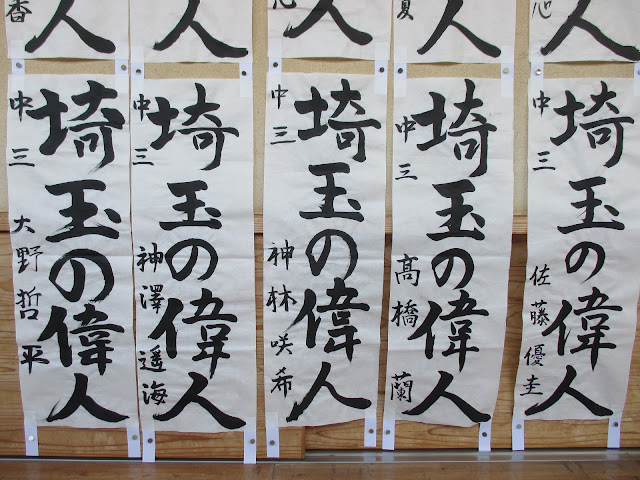 人
人
夏
人
人
人
香
埼玉の偉人
中三 佐藤優圭
埼玉の偉人
中三 髙橋蘭
埼玉の偉人
中三 神林咲希
埼玉の偉人
中三 神澤遥海
埼玉の偉人
中三 大野哲平